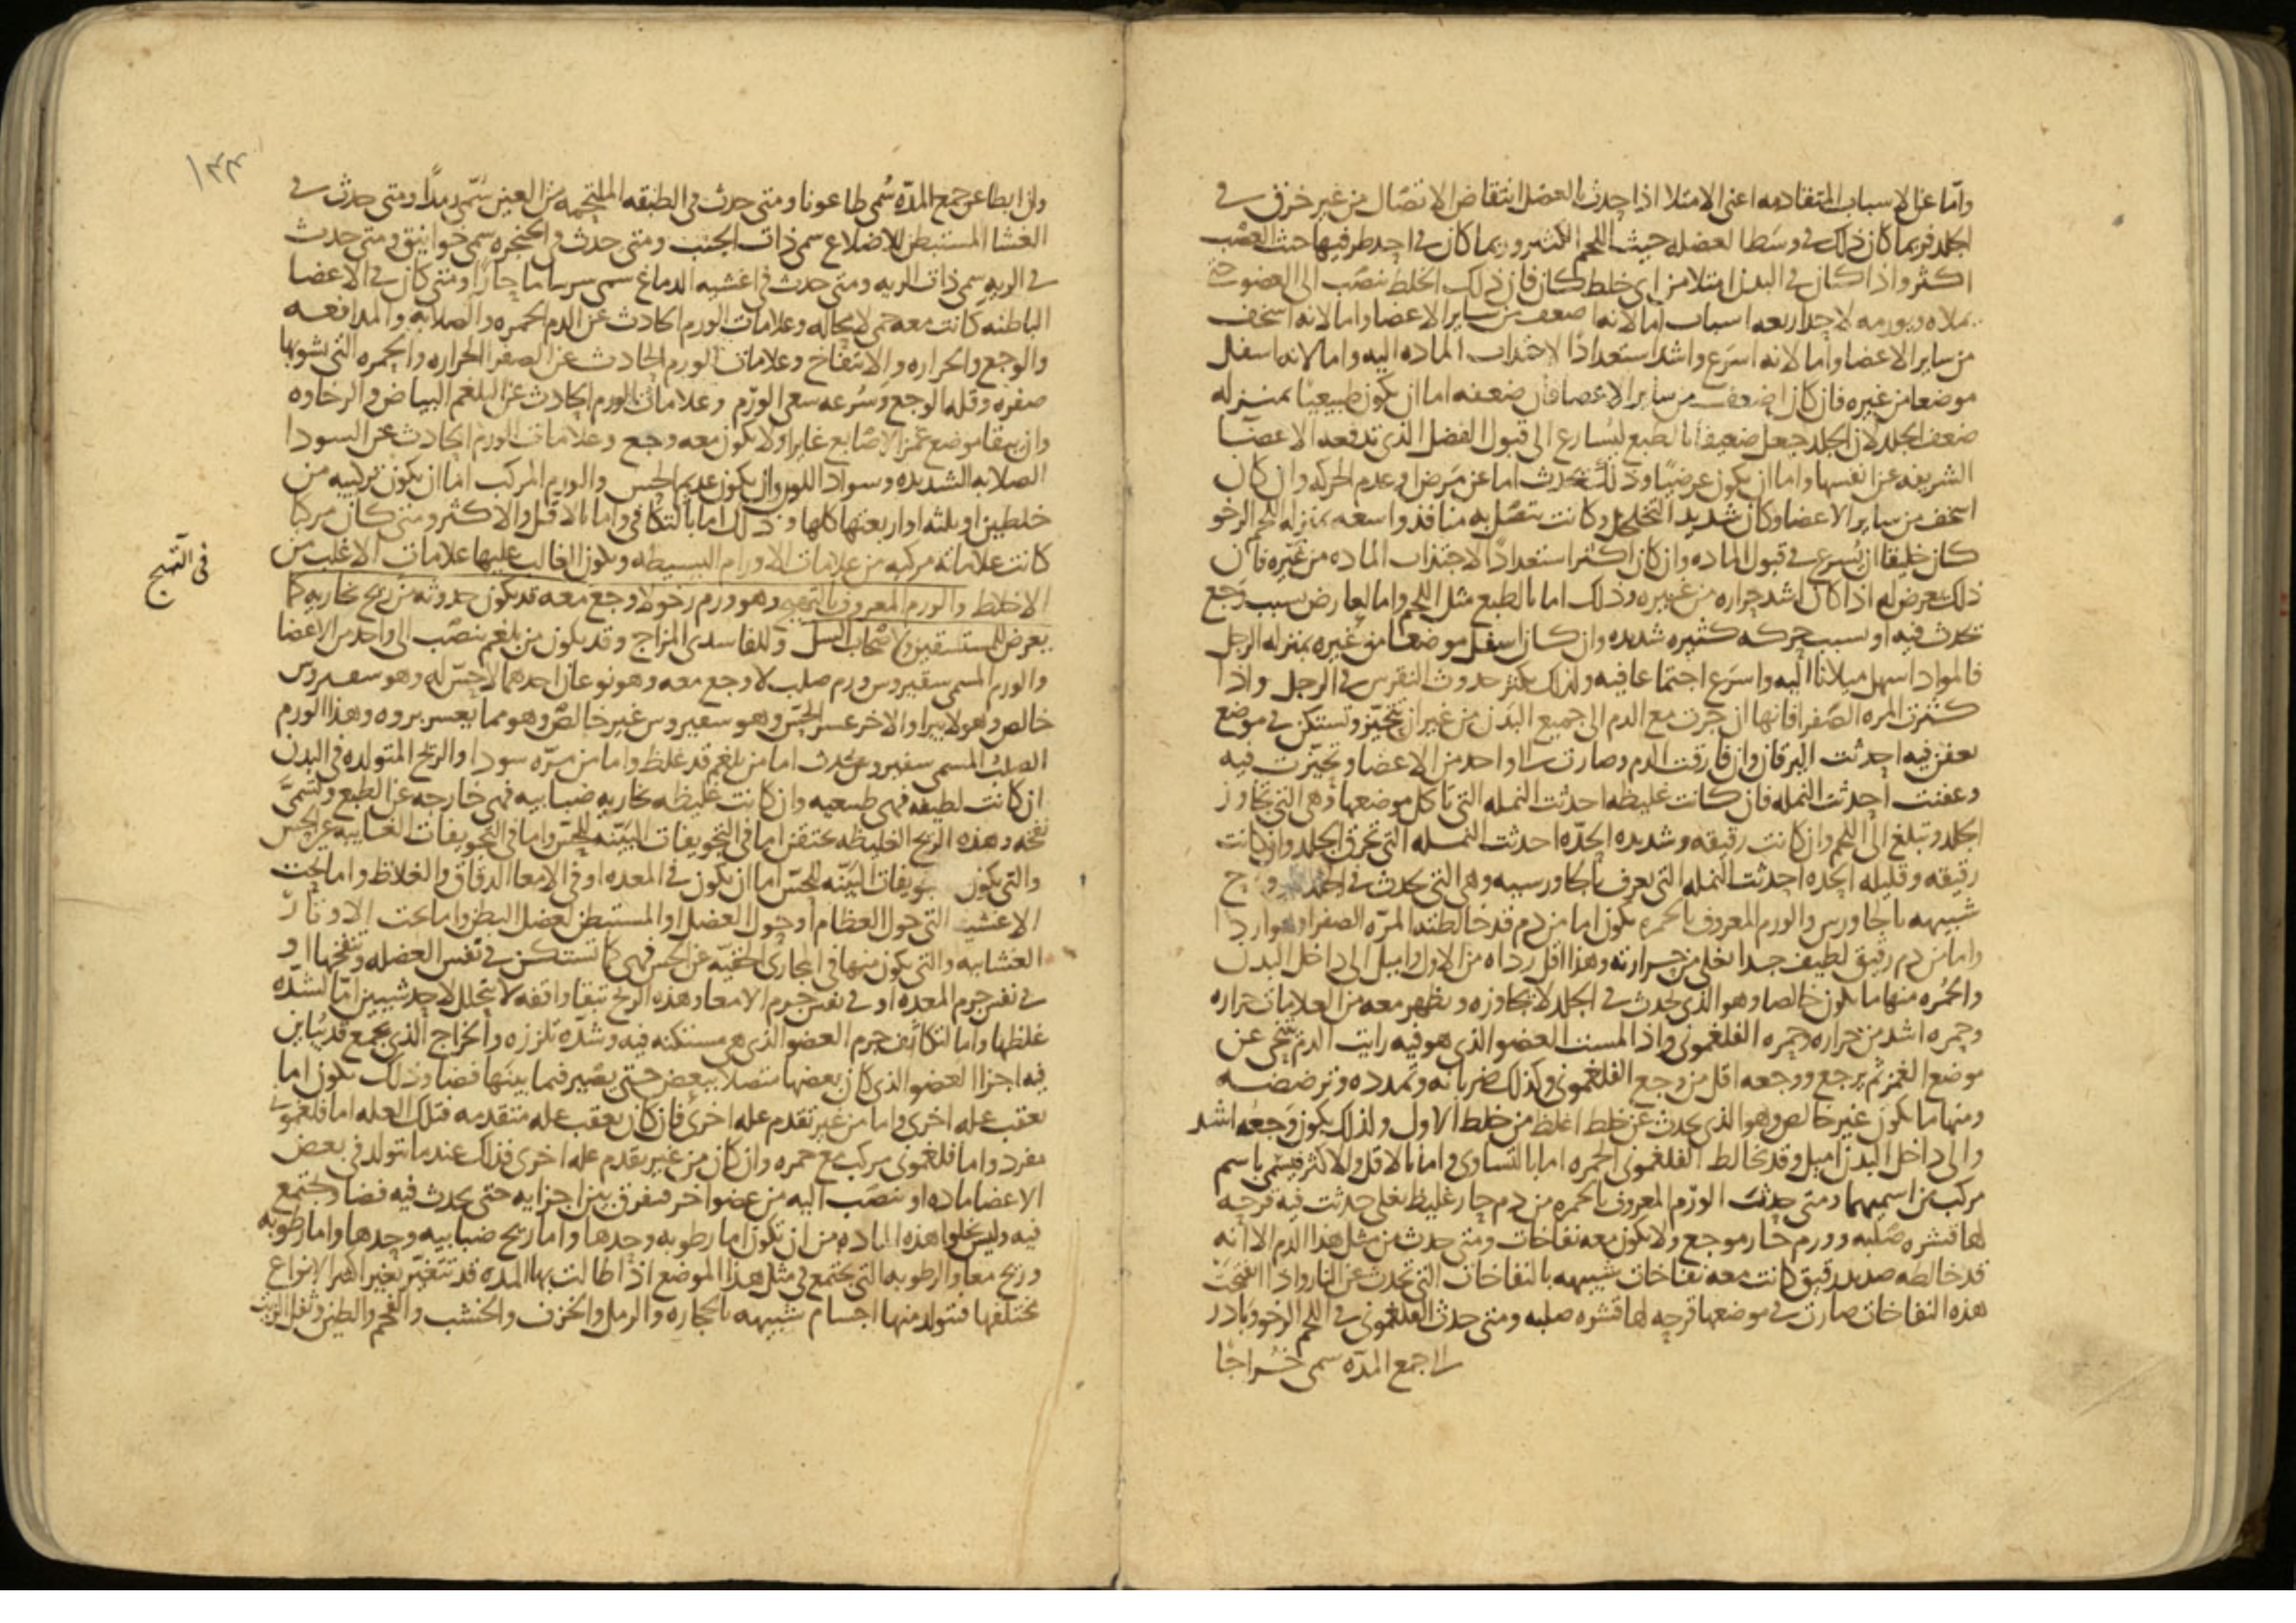 واما عن الاسباب المتقادمه اعنى الامتلا اذا حدث بالعضل انتقاض الاتصال من غير خرق فى
الجلد فربما كان ذلك فى وسط العضله حيث اللحم الكثير وربما كان فى احد طرفيها حيث العصب
اكثر واذا كان فى البدن امتلا من اى خلط كان فان ذلك الخلط ينصب الى العضو حتى
يملاه ويورمه لاحد اربعه اسباب اما لانه اضعف من ساير الاعضا واما لانه اسخف
من ساير الاعضا واما لانه اسرع واشد استعدادا لاجتذاب الماده اليه واما لانه اسفل
موضعا من غيره فان كان اضعف من ساير الاعضا فان ضعفه اما ان يكون طبيعيا بمنزله
ضعف الجلد لان الجلد جعل ضعيفا بالطبع ليسارع الى قبول الفضل الذى تدفعه الاعضا
الشريفه عن انفسها واما ان يكون عرضيا وذلك يحدث اما عن مرض او عدم الحركه وان كان
اسخف من ساير الاعضا وكان شديد التخلخل وكانت تتصل به منافذ واسعه بمنزله اللحم الرخو
كان خليقا ان يسرع فى قبول الماده وان كان اكثر استعدادا لاجتذاب الماده من غيره فان
ذلك يعرض له اذا كان اشد حراره من غيره وذلك اما بالطبع مثل اللحم واما لعارض بسبب وجع
يحدث فيه او بسبب حركه كثيره شديده وان كان اسفل موضعا من غيره بمنزله الرجل
فالمواد اسهل ميلانا اليه واسرع اجتماعا فيه ولذلك يكثر حدوث النقرس فى الرجل واذا
كثرت المره الصفرا فانها ان جرت مع الدم الى جميع البدن من غير ان تتحيز وتستكن فى موضع
تعفن فيه احدثت اليرقان وان فارقت الدم وصارت الى واحد من الاعضا وتحيزت فيه
وعفنت احدثت النمله فان كانت غليظه احدثت النمله التى تاكل موضعها وهى التى تجاوز
الجلد وتبلغ الى اللحم وان كانت رقيقه وشديده الحده احدثت النمله التى تحرق الجلد وان كانت
رقيقه وقليله الحده احدثت النمله التى تعرف بالجاورسيه وهى التى تحدث فى الجلد
شبيهه بالجاورس والورم المعروف بالحمره يكون اما من دم قد خالطته المره الصفرا
واما من دم رقيق لطيف جدا يغلى من حرارته وهذا اقل رداه من الاول واميل الى داخل البدن
والحمره منها ما يكون خالصا وهو الذى يحدث فى الجلد لا يجاوزه ويظهر معه من العلامات حراره
وحمره اشد من حراره وحمره الفلغمونى واذا لمست العضو الذى هو فيه رايت الدم يتنحى عن
موضع الغمز ثم يرجع ووجعه اقل من وجع الفلغمونى وكذلك ضربانه وتمدده وترضضه
ومنها ما يكون غير خالص وهو الذى يحدث عن خلط اغلظ من خلط الاول ولذلك يكون وجعه اشد
والى داخل البدن اميل وقد تخالط الفلغمونى الحمره اما بالتساوى واما بالاقل والاكثر فيسمى باسم
مركب من اسميهما ومتى حدث الورم المعروف بالحمره من دم حار غليظ يغلى حدثت فيه قرحه
لها قشره صلبه وورم حار موجع ولا يكون معه نفاخات ومتى حدث من مثل هذا الدم الا انه
قد خالطه صديد رقيق كانت معه نفاخات شبيهه بالنفاخات التى تحدث عن النار واذا انفجرت
هذه النفاخات صارت فى موضعها قرحه لها قشره صلبه ومتى حدث الفلغمونى فى اللحم الرخو وبادر
الى جمع المده سمى خراجا
١٣٣
وان ابطا عن جمع المده سمى طاعونا ومتى حدث فى الطبقه الملتحمه من العين سمى رمدا ومتى حدث فى
الغشا المستبطن للاضلاع سمى ذات الجنب ومتى حدث فى الحنجره سمى خوانيق ومتى حدث
فى الريه سمى ذات الريه ومتى حدث فى اغشيه الدماغ سمى سرساما حارا ومتى كان فى الاعضا
الباطنه كانت معه حمى لا محاله وعلامات الورم الحادث عن الدم الحمره والصلابه والمدافعه
والوجع والحراره والانتفاخ وعلامات الورم الحادث عن الصفرا الحراره والحمره التى يشوبها
صفره وقله الوجع وسرعه سعى الورم وعلامات الورم الحادث عن البلغم البياض والرخاوه
وان يبقا موضع غمز الاصابع غايرا ولا يكون معه وجع وعلامات الورم الحادث عن السودا
الصلابه الشديده وسواد اللون وان يكون عديم الحس والورم المركب اما ان يكون تركيبه من
خلطين او ثلثه او اربعتها كلها وذلك اما بالتكافى واما بالاقل والاكثر ومتى كان مركبا
كانت علاماته مركبه من علامات الاورام البسيطه ويكون الغالب عليها علامات الاغلب من
فى التهيج
الاخلاط والورم المعروف بالتهيج وهو ورم رخو لا وجع معه قد يكون حدوثه من ريح بخاريه كما
يعرض للمستسقين ولاصحاب السل وللفاسدى المزاج وقد يكون من بلغم ينصب الى واحد من الاعضا
والورم المسمى سقيروس ورم صلب لا وجع معه وهو نوعان احدهما لا حس له وهو سقيروس
خالص وهو لا يبرا والاخر عسر الحس وهو سقيروس غير خالص وهو مما يعسر بروه وهذا الورم
الصلب المسمى سقيروس يحدث اما من بلغم قد غلظ واما من مره سودا والريح المتولده فى البدن
ان كانت لطيفه فهى طبيعيه وان كانت غليظه بخاريه ضبابيه فهى خارجه عن الطبع وتسمى
نفخه وهذه الريح الغليظه تحتقن اما فى التجويفات البينه للحس واما فى التجويفات الغايبه عن الحس
والتى تكون التجويفات البينه للحس اما ان يكون فى المعده او فى الامعا الدقاق والغلاظ واما تحت
الاغشيه التى حول العظام او حول العضل او المستبطن لعضل البطن واما تحت الاوتار
الغشاييه والتى يكون منها فى المجارى الخفيه عن الحس فهى كما تستكن فى نفس العضله وتنفخها او
فى نفس جرم المعده او فى نفس جرم الامعا وهذه الريح تبقا واقفه لا تتحلل لاحد شيين اما لشده
غلظها واما لتكاثف جرم العضو الذى هى مستكنه فيه وشده تلززه والخراج الذى يجمع قد تباين
فيه اجزا العضو الذى كان بعضها متصلا ببعض حتى يصير فيما بينها فضا وذلك يكون اما
بعقب عله اخرى واما من غير تقدم عله اخرى فان كان بعقب عله متقدمه فتلك العله اما فلغمونى
مفرد واما فلغمونى مركب مع حمره وان كان من غير تقدم عله اخرى فذلك عندما تتولد فى بعض
الاعضا ماده او تنصب اليه من عضو اخر فتفرق بين اجزايه حتى يحدث فيه فضا وتجتمع
فيه وليس تخلوا هذه الماده من ان تكون اما رطوبه وحدها واما ريح ضبابيه وحدها واما رطوبه
وريح معا والرطوبه التى تجتمع فى مثل هذا الموضع اذا طالت بها المده قد تتغير تغيير كثير الانواع
مختلفها فتتولد منها اجسام شبيهه بالحجاره والرمل والخزف والخشب والفحم والطين وثفل الزيت